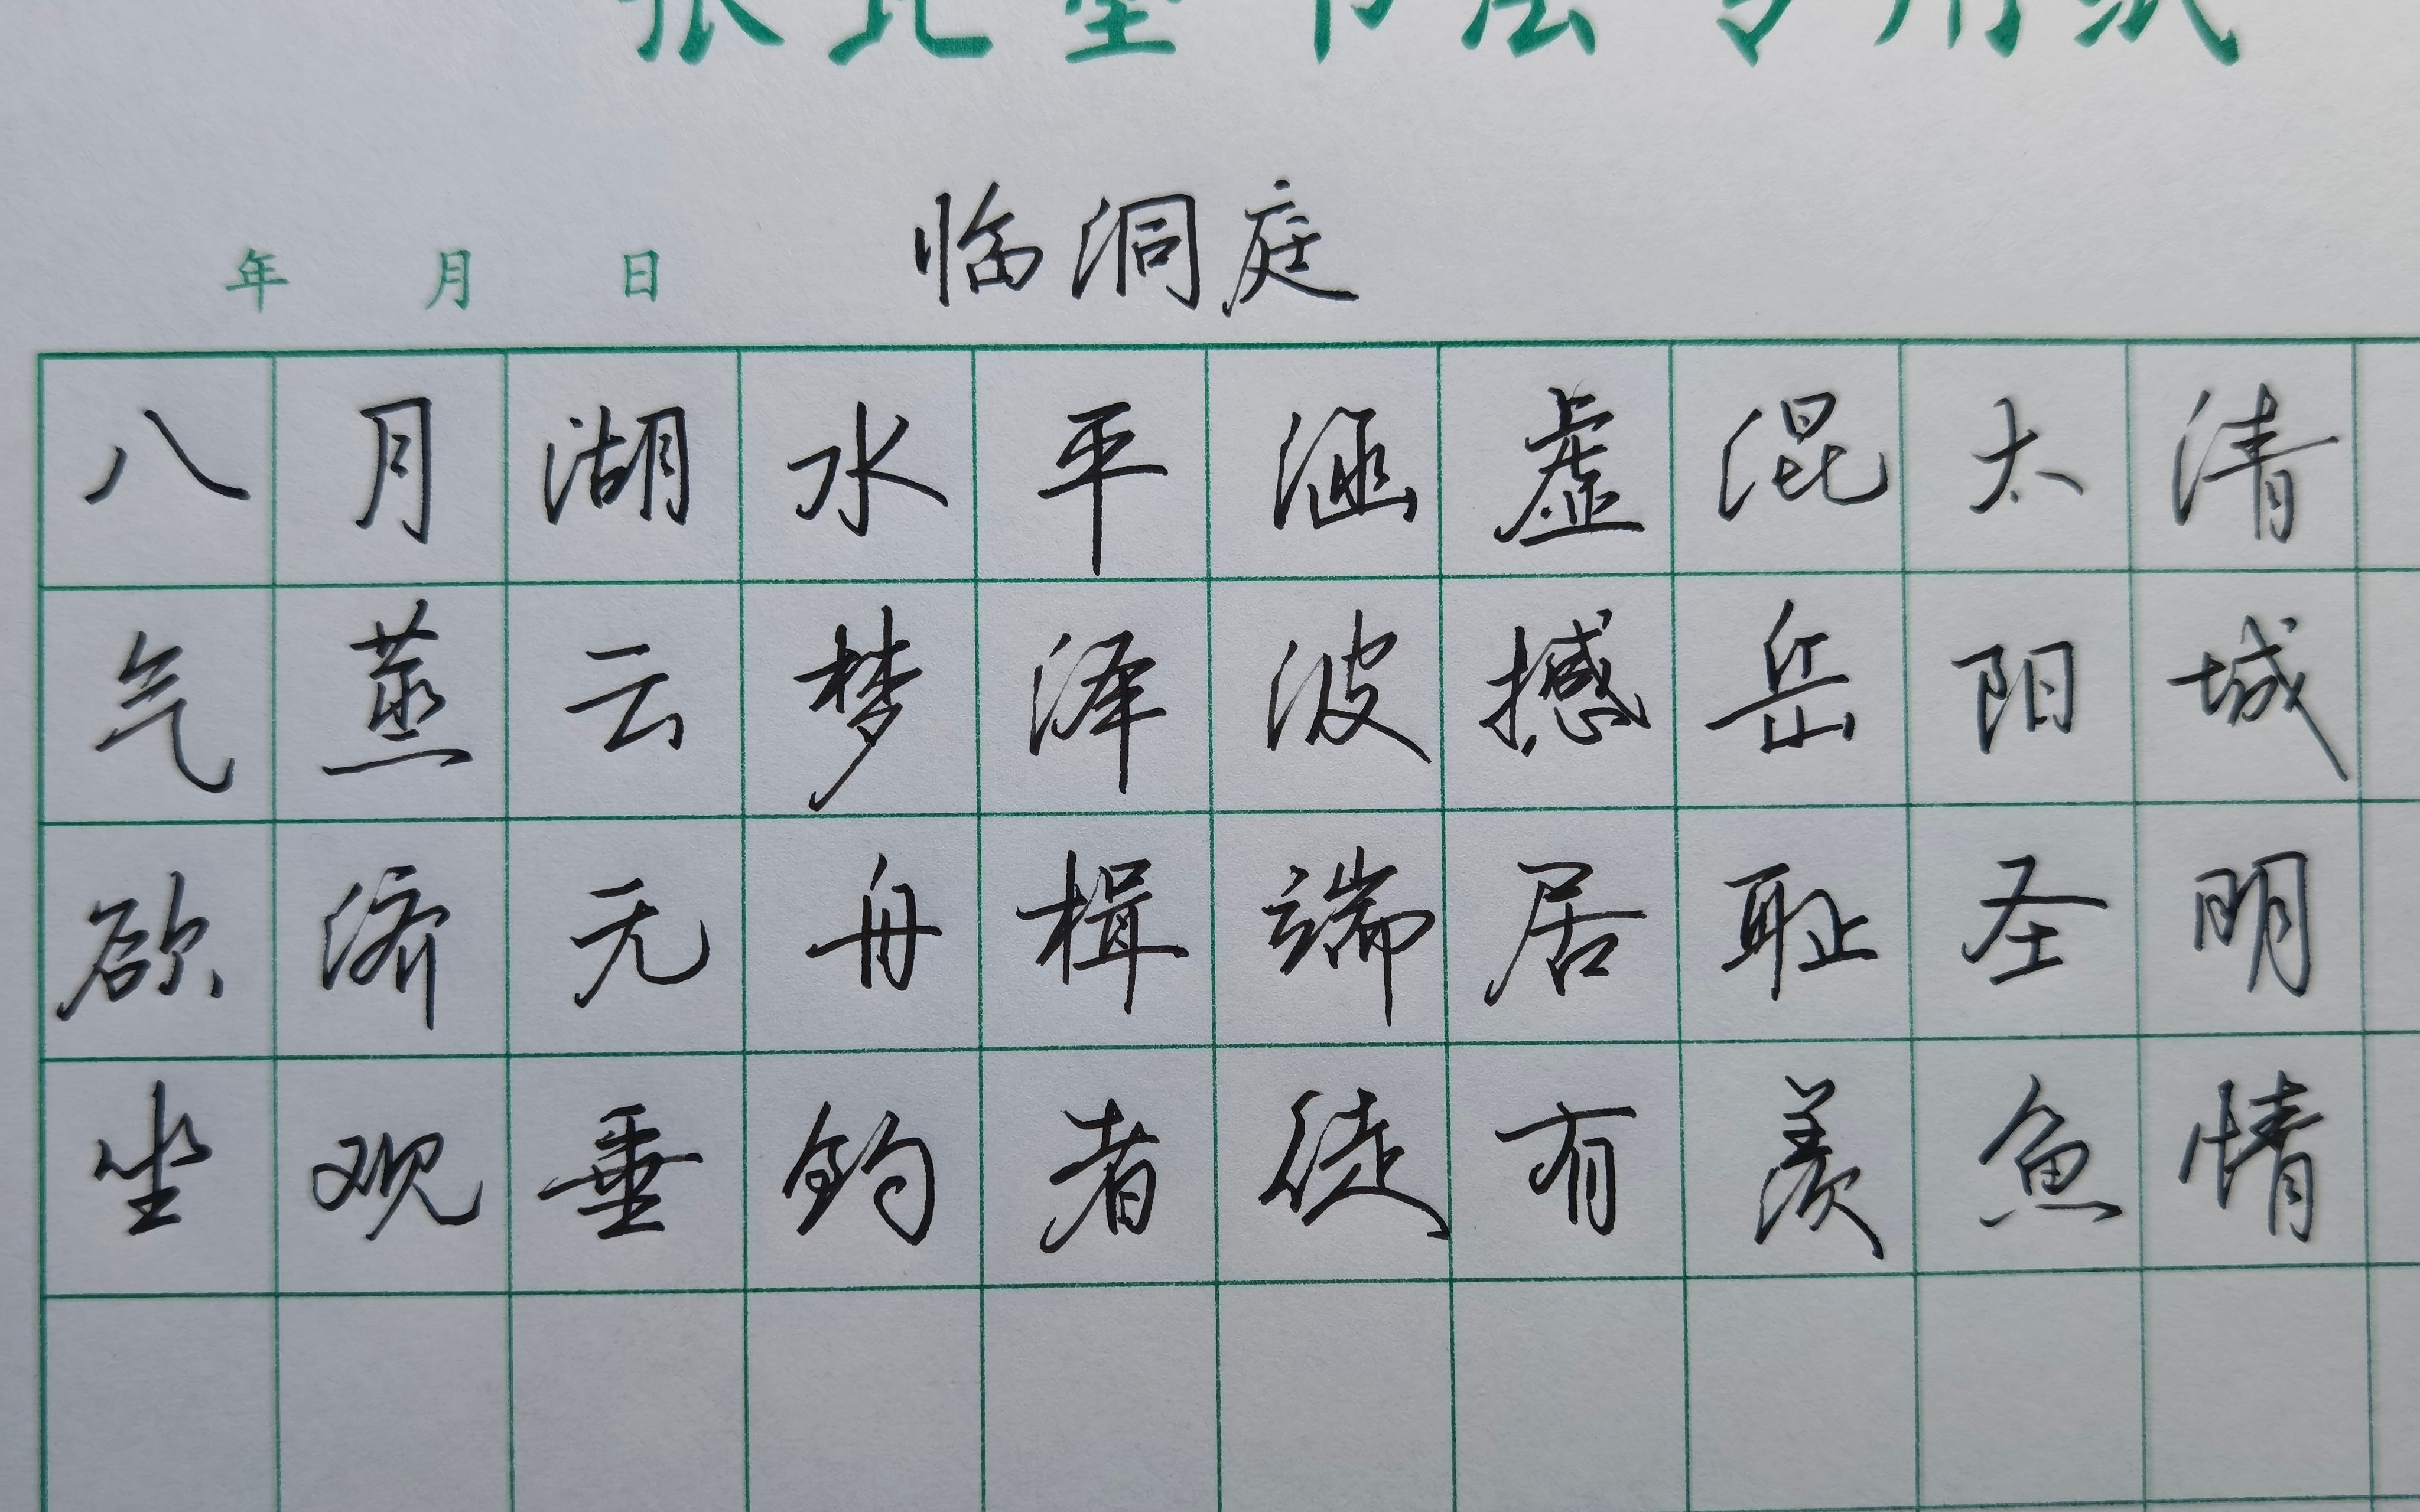 年 月 日
临洞庭
八月湖水平涵虚混太清
气蒸云梦泽波撼岳阳城
欲济无舟楫端居耻圣明
坐观垂钓者徒有羡鱼情